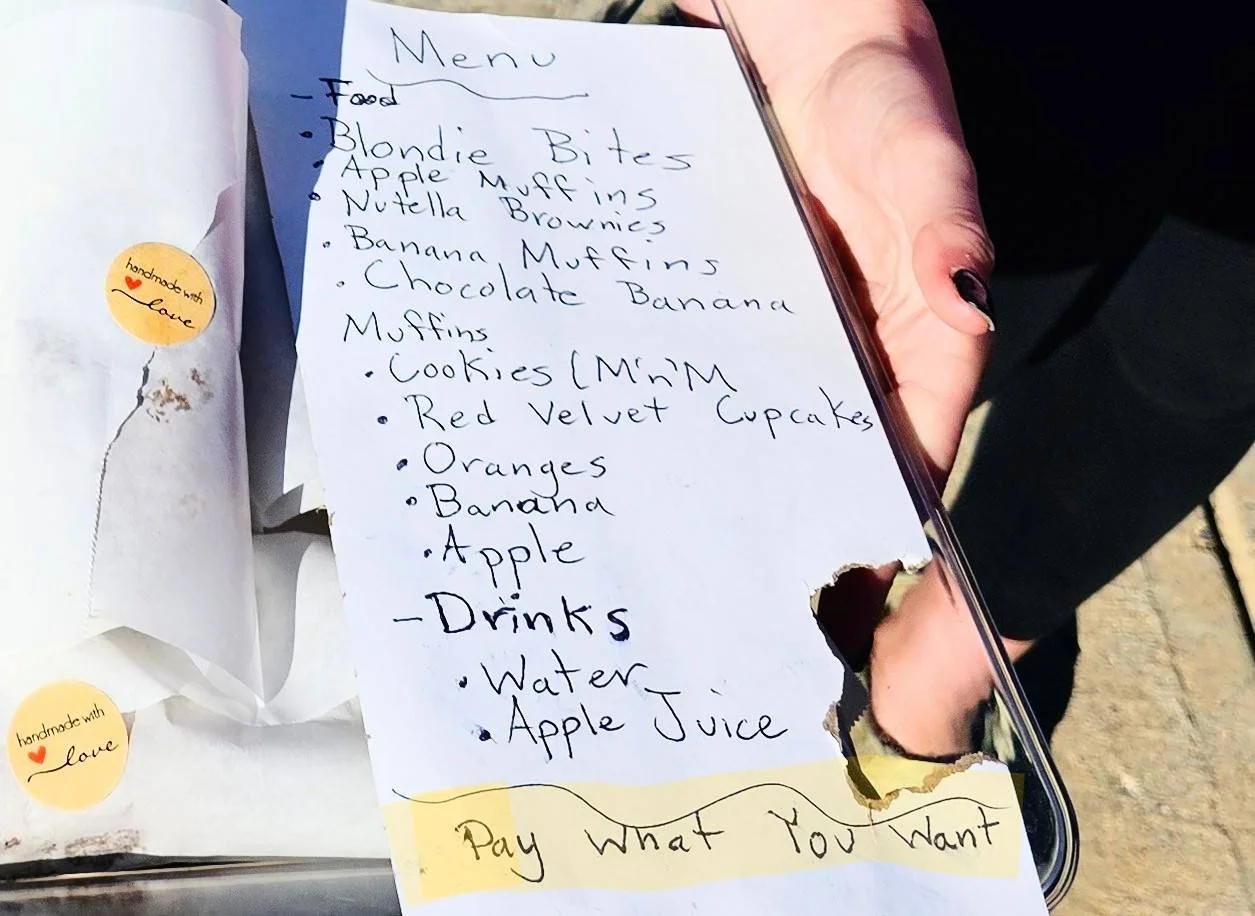 Menu
- Food
• Blondie Bites
• Apple Muffins
• Nutella Brownies
• Banana Muffins
• Chocolate Banana
Muffins
• Cookies (M'n'M
• Red Velvet Cupcakes
• Oranges
• Banana
• Apple
- Drinks
• Water
• Apple Juice
Pay What You Want
handmade with
love
handmade with
love